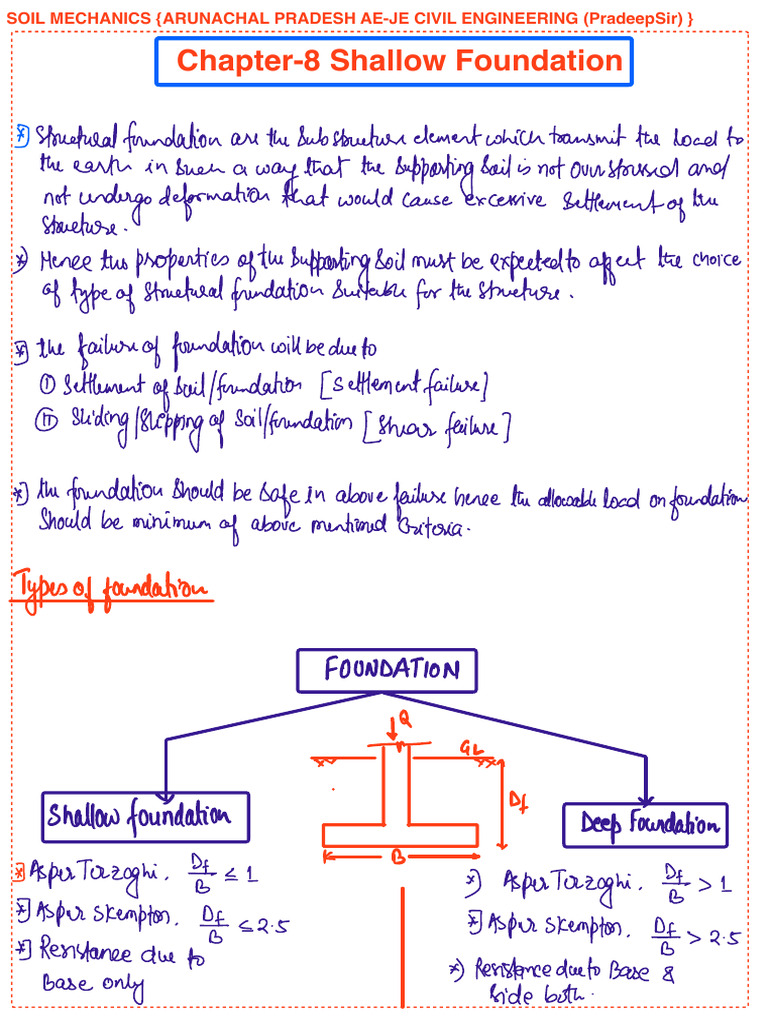 SOIL MECHANICS {ARUNACHAL PRADESH AE-JE CIVIL ENGINEERING (PradeepSir) }
Chapter-8 Shallow Foundation
*) Structural foundation are the Substructure element which transmit the Load to
the earth in such a way that the supporting Soil is not overstressed and
not undergo deformation that would cause excessive settlement of the
structure.
*) Hence the properties of the supporting soil must be expected to affect the choice
of type of structural foundation suitable for the structure.
*) the failure of foundation will be due to
(I) Settlement of Soil/foundation [Settlement failure]
(II) Sliding/Slipping of Soil/foundation [Shear failure]
*) the foundation should be safe in above failure hence the allowable load on foundation
Should be minimum of above mentioned Criteria.
Types of foundation
FOUNDATION
Q
GL
Df
B
Shallow foundation
*) As per Terzaghi, Df/B ≤ 1
*) As per Skempton, Df/B ≤ 2.5
*) Resistance due to
Base only
Deep Foundation
*) As per Terzaghi, Df/B > 1
*) As per Skempton, Df/B > 2.5
*) Resistance due to Base &
Side both.